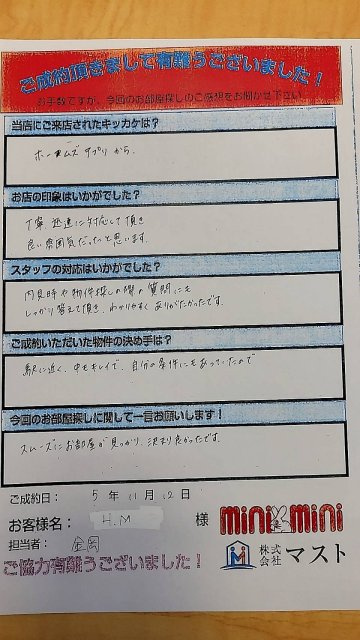 ご成約頂きまして有難うございました！
お手数ですが、今回のお部屋探しのご感想をお聞かせ下さい
当店にご来店されたキッカケは？
ホームズアプリから、
お店の印象はいかがでした？
丁寧迅速に対応して頂き
良い雰囲気だったと思います。
スタッフの対応はいかがでした？
内見時や物件探しの際の質問にも
しっかり答えて頂き、わかりやすくありがたかったです。
ご成約いただいた物件の決め手は？
駅に近く、中もキレイで、自分の条件にもあっていたので
今回のお部屋探しに関して一言お願いします！
スムーズにお部屋が見つかり、決まり良かったです。
ご成約日： 5年 11月 12日
お客様名： H.M 様
mini mini
担当者： 金岡
株式会社 マスト
ご協力有難うございました！